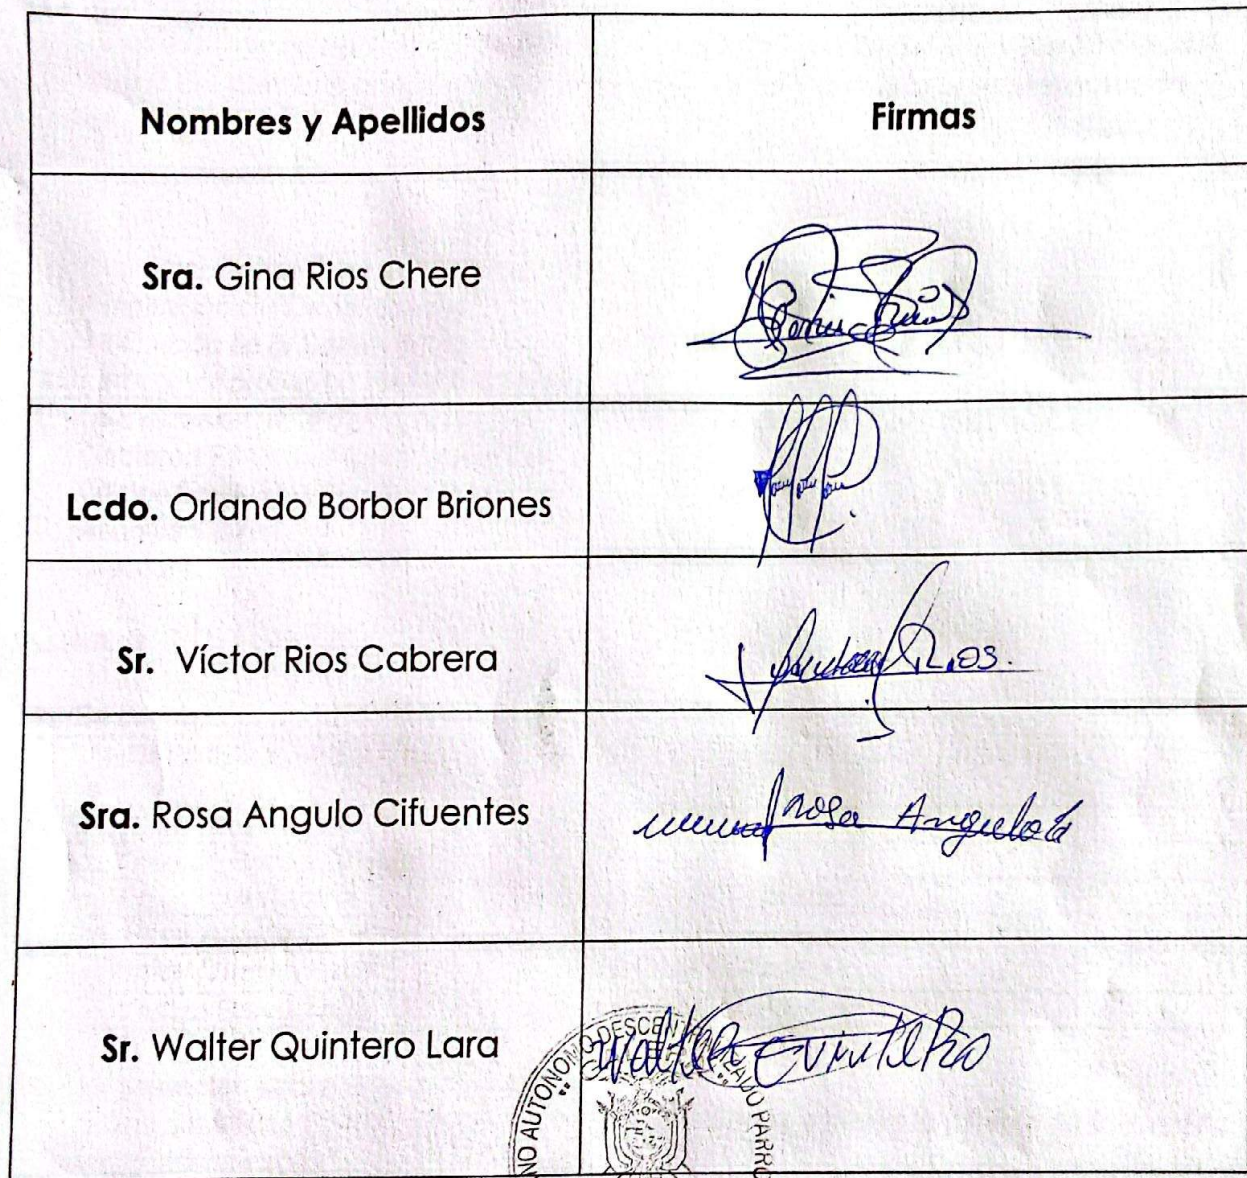 Nombres y Apellidos
Firmas
Sra. Gina Rios Chere
Lcdo. Orlando Borbor Briones
Sr. Víctor Rios Cabrera
Rios.
Sra. Rosa Angulo Cifuentes
Rosa Angulo
Sr. Walter Quintero Lara
Walter Quintero
NO AUTONOMO DESCENTRALIZADO PARRO